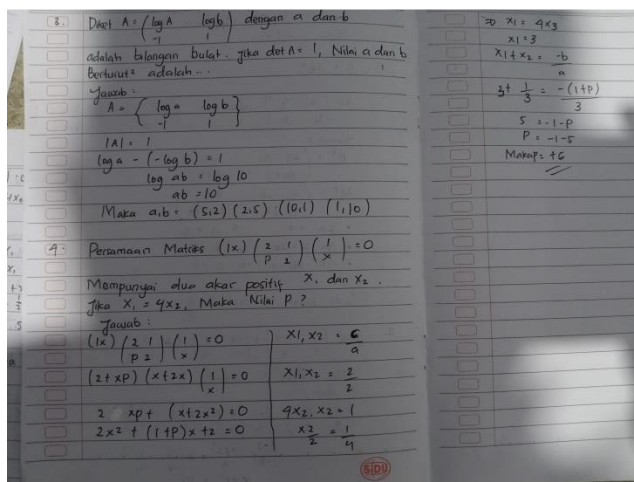 8. Diket A = (log A log b) dengan a dan b
-1 1
adalah bilangan bulat. Jika det A = 1, Nilai a dan b
Berturut² adalah...
Jawab :
A = { log a log b }
-1 1
|A| = 1
log a - (-log b) = 1
log ab = log 10
ab = 10
Maka a,b = (5,2) (2,5) (10,1) (1,10)
9. Persamaan Matriks (1x) (2 1) (1) = 0
P 2 x
Mempunyai dua akar positif X, dan X2.
Jika X, = 4X2, Maka Nilai P?
Jawab :
(1x) (2 1) (1) = 0
P 2 x
(2 + xp) (x + 2x) (1) = 0
x
2 xp + (x + 2x²) = 0
2x² + (1 + P)x + 2 = 0
X1, X2 = C
a
X1, X2 = 2
2
4X2, X2 = 1
X2 = 1
2 4
⇒ X1 = 4X3
X1 = 3
X1 + X2 = -b
a
3 + 1 = -(1+P)
3 3
5 = -1 - P
P = -1 - 5
Maka P = +6
SIDU